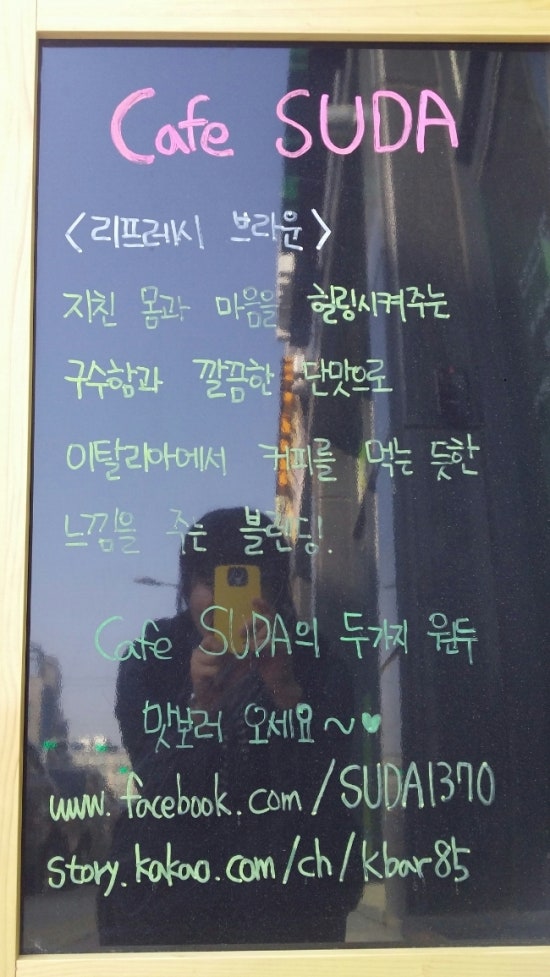 Cafe SUDA
<리프레시 브라운>
지친 몸과 마음을 힐링시켜주는
구수함과 깔끔한 단맛으로
이탈리아에서 커피를 먹는 듯한
느낌을 주는 블렌딩!
Cafe SUDA의 두가지 원두
맛보러 오세요~♥
www.facebook.com/SUDA1370
story.kakao.com/ch/kbar85